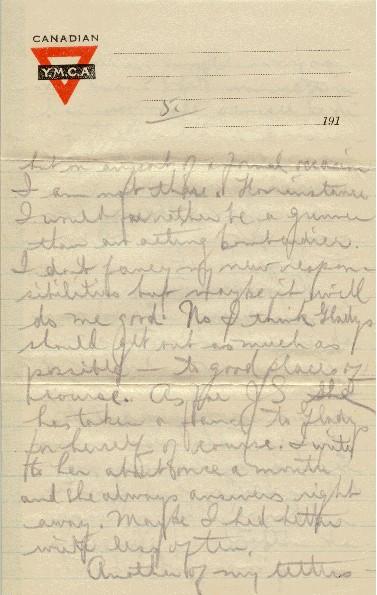 CANADIAN
Y.M.C.A
5.
191
but on account of a formal occasion
I am not there. For instance
I would far rather be a gunner
than an acting bombardier.
I don't fancy my new respon-
sibilities but maybe it will
do me good. No I think Gladys
should get out as much as
possible — to good places of
course. As for J.S. she
has taken a fancy to Gladys
for herself of course. I write
to her about once a month
and she always answers right
away. Maybe I had better
write less often.
Another of my letters —